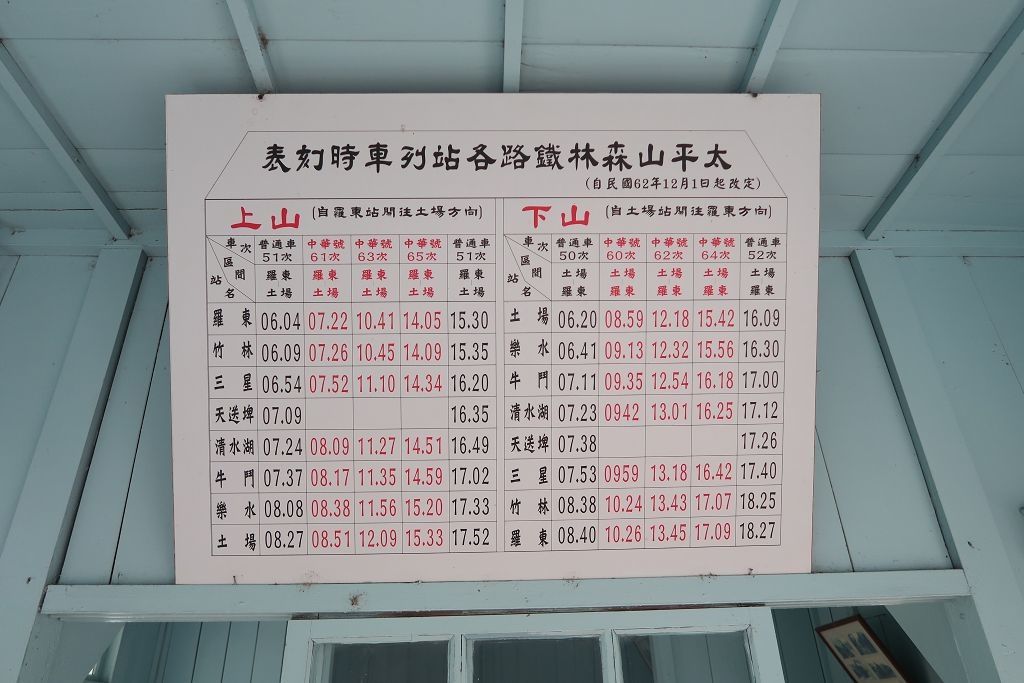 表刻時車列站各路鐵林森山平太
(自民國62年12月1日起改定)
上山 (自羅東站開往土場方向)
車次 區間 站名 普通車 中華號 中華號 中華號 普通車
51次 61次 63次 65次 51次
羅東 羅東 羅東 羅東 羅東
土場 土場 土場 土場 土場
羅東 06.04 07.22 10.41 14.05 15.30
竹林 06.09 07.26 10.45 14.09 15.35
三星 06.54 07.52 11.10 14.34 16.20
天送埤 07.09 16.35
清水湖 07.24 08.09 11.27 14.51 16.49
牛鬥 07.37 08.17 11.35 14.59 17.02
樂水 08.08 08.38 11.56 15.20 17.33
土場 08.27 08.51 12.09 15.33 17.52
下山 (自土場站開往羅東方向)
車次 區間 站名 普通車 中華號 中華號 中華號 普通車
50次 60次 62次 64次 52次
土場 土場 土場 土場 土場
羅東 羅東 羅東 羅東 羅東
土場 06.20 08.59 12.18 15.42 16.09
樂水 06.41 09.13 12.32 15.56 16.30
牛鬥 07.11 09.35 12.54 16.18 17.00
清水湖 07.23 0942 13.01 16.25 17.12
天送埤 07.38 17.26
三星 07.53 0959 13.18 16.42 17.40
竹林 08.38 10.24 13.43 17.07 18.25
羅東 08.40 10.26 13.45 17.09 18.27